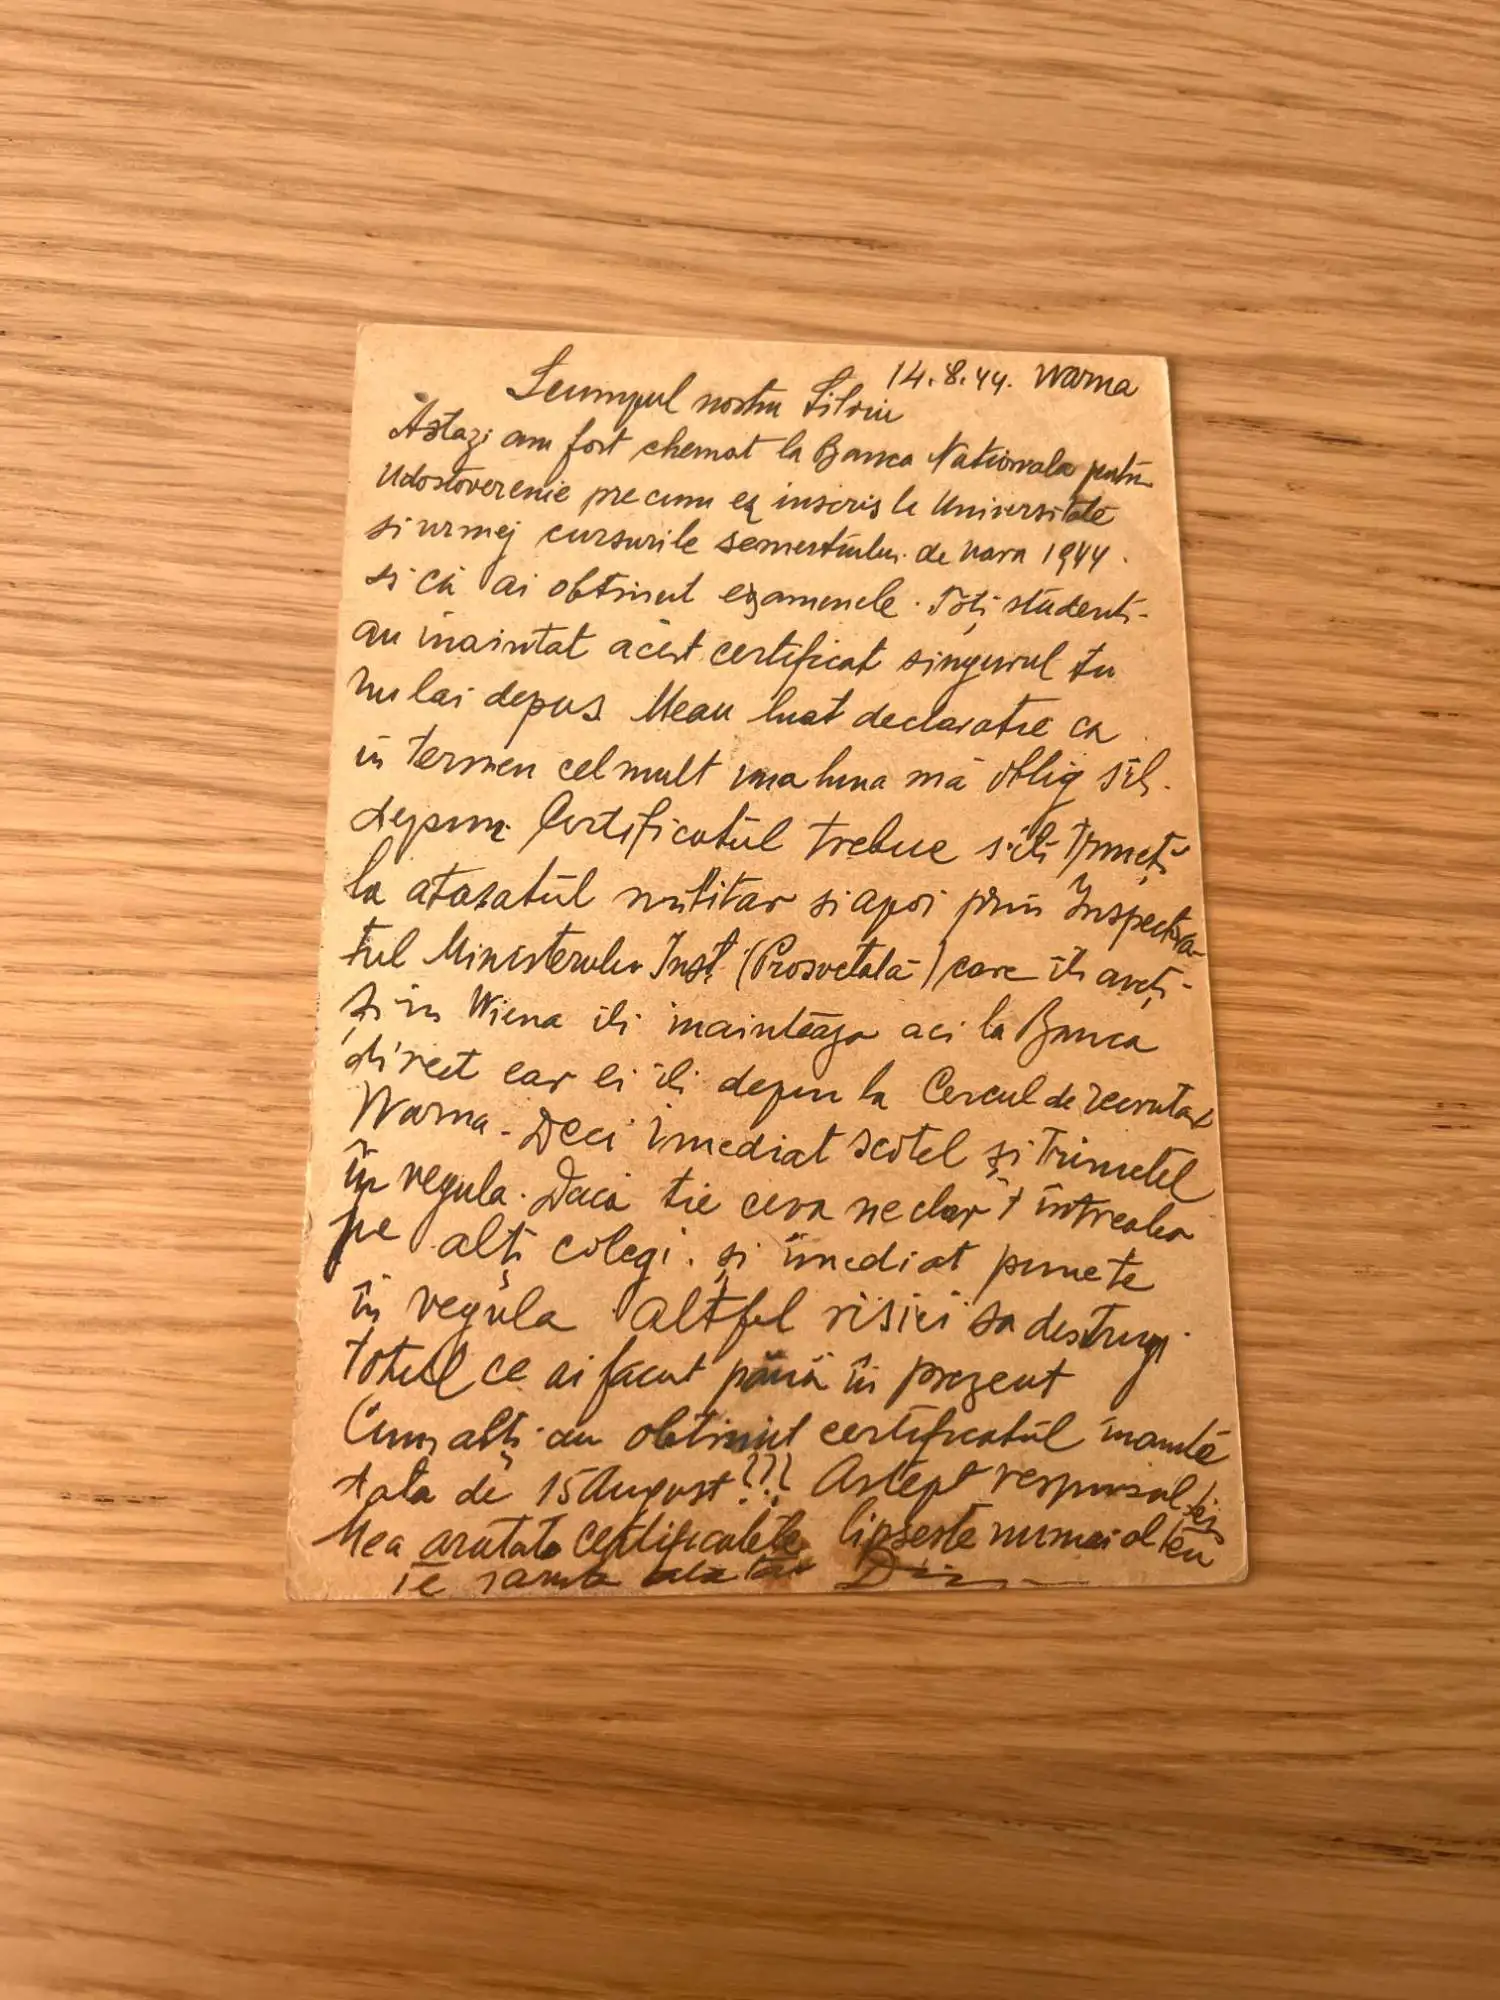 14.8.44. Warna
Scumpul nostru Silviu
Astazi am fost chemat la Banca Nationala pentru
Udostoverenie precum eș inscris la Universitate
si urmej cursurile semestrului de vara 1944.
si că ai obtinut examenele. Toți studenti-
au inaintat acest certificat singurul tu
nu lai depus. Meau luat declaratie ca
in termen cel mult una luna mă oblig săl.
depun. Certificatul trebue săli trimeți
la atasatul militar si apoi prin Inspectora-
tul Ministerului Inst. (Prosvetală) care ili aveți-
și in Wiena ili inainteaza aci la Banca
direct ear ei ili depun la Cercul de recrutar
Warna. Deci imediat scotel și trimetel
în regula. Daca tie ceva neclar intreaba
pe alți colegi. și imediat punete
în regula altfel risici sa destrugi
totul ce ai facut până în prezent
Cum alți au obtinut certificatul inante
data de 15 August??? Astept responsul
Mea aratata certificatele lipseste numai al teu